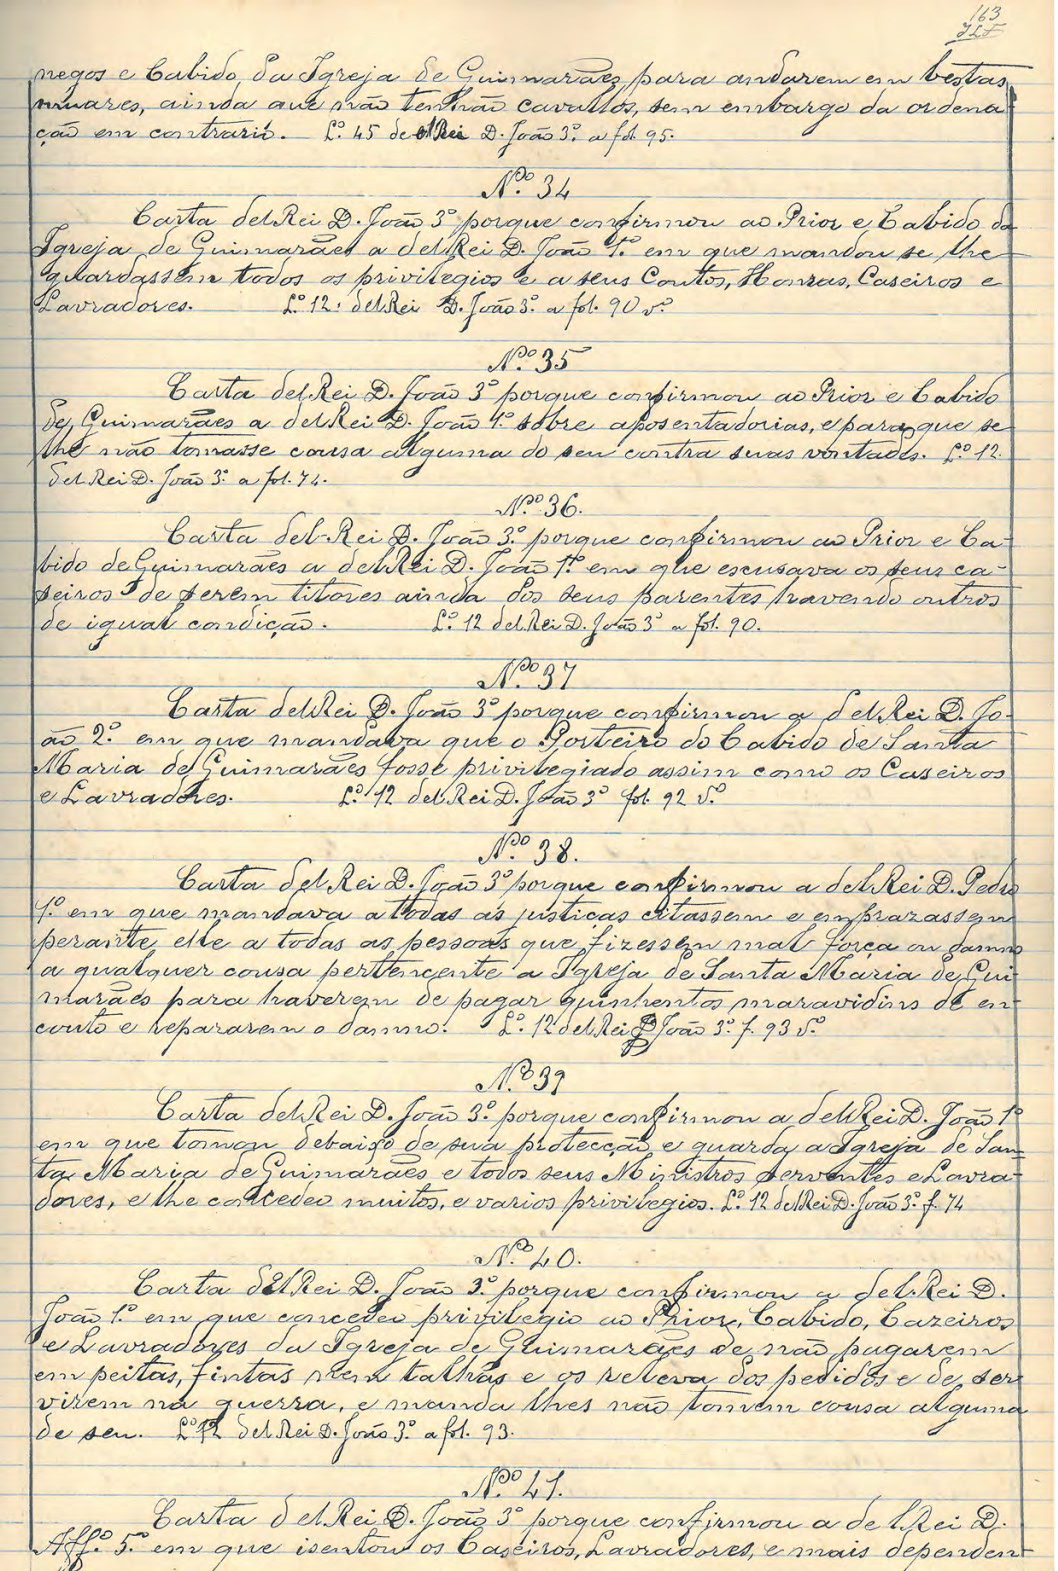 163
negos e Cabido da Igreja de Guimarães, para andarem em bestas
muares, ainda que não tenhão cavallos, sem embargo da ordena
ção em contrario. L.º 45 de elRei D. João 3.º a fol. 95.
N.º 34
Carta delRei D. João 3º porque confirmou ao Prior e Cabido da
Igreja de Guimarães a delRei D. João 1.º em que mandou se lhe
guardassem todos os privilegios e a seus Coutos, Honras, Caseiros e
Lavradores. L.º 12. delRei D. João 3.º a fol. 90 v.º
N.º 35
Carta delRei D. João 3º porque confirmou ao Prior e Cabido
de Guimarães a delRei D. João 1.º sobre aposentadorias, e para que se
lhe não tomasse cousa alguma do seu contra suas vontades. L.º 12.
delRei D. João 3.º a fol. 74.
N.º 36.
Carta del-Rei D. João 3.º porque confirmou ao Prior e Ca-
bido de Guimarães a delRei D. João 1.º em que escusava os seus ca-
seiros de serem titores ainda dos seus parentes havendo outros
de igual condição. L.º 12 delRei D. João 3º a fol. 90.
N.º 37
Carta delRei D. João 3º porque confirmou a delRei D. Jo-
ão 2.º em que mandava que o Porteiro do Cabido de Santa
Maria de Guimarães fosse privilegiado assim como os Caseiros
e Lavradores. L.º 12 delRei D. João 3º fol. 92 v.º
N.º 38.
Carta delRei D. João 3º porque confirmou a delRei D. Pedro
1.º em que mandava a todas as justiças citassem e emprazassem
perante elle a todas as pessoas que fizessem mal força ou damno
a qualquer cousa pertencente a Igreja de Santa Maria de Gui
marães para haverem de pagar quinhentos maravidins de en-
couto e repararem o damno. L.º 12 delRei D João 3.º f. 93 v.º
N.º 39
Carta delRei D. João 3.º porque confirmou a delRei D. João 1º
em que tomou debaixo de sua protecção e guarda a Igreja de San-
ta Maria de Guimarães e todos seus Ministros serventes e Lavra-
dores, e lhe concedeo muitos, e varios privilegios. L.º 12 delRei D. João 3.º f. 74
N.º 40.
Carta delRei D. João 3.º porque confirmou a del-Rei D.
João 1.º em que concedeo privilegio ao Prior, Cabido, Cazeiros
e Lavradores da Igreja de Guimarães de não pagarem
em peitas, fintas nem talhas e os releva dos pedidos e de ser
virem na guerra, e manda lhes não tomem cousa alguma
de seu. L.º 12 delRei D. João 3.º a fol. 93.
N.º 41.
Carta delRei D. João 3º porque confirmou a de lRei D.
Aff.º 5.º em que isentou os Caseiros, Lavradores, e mais dependen-